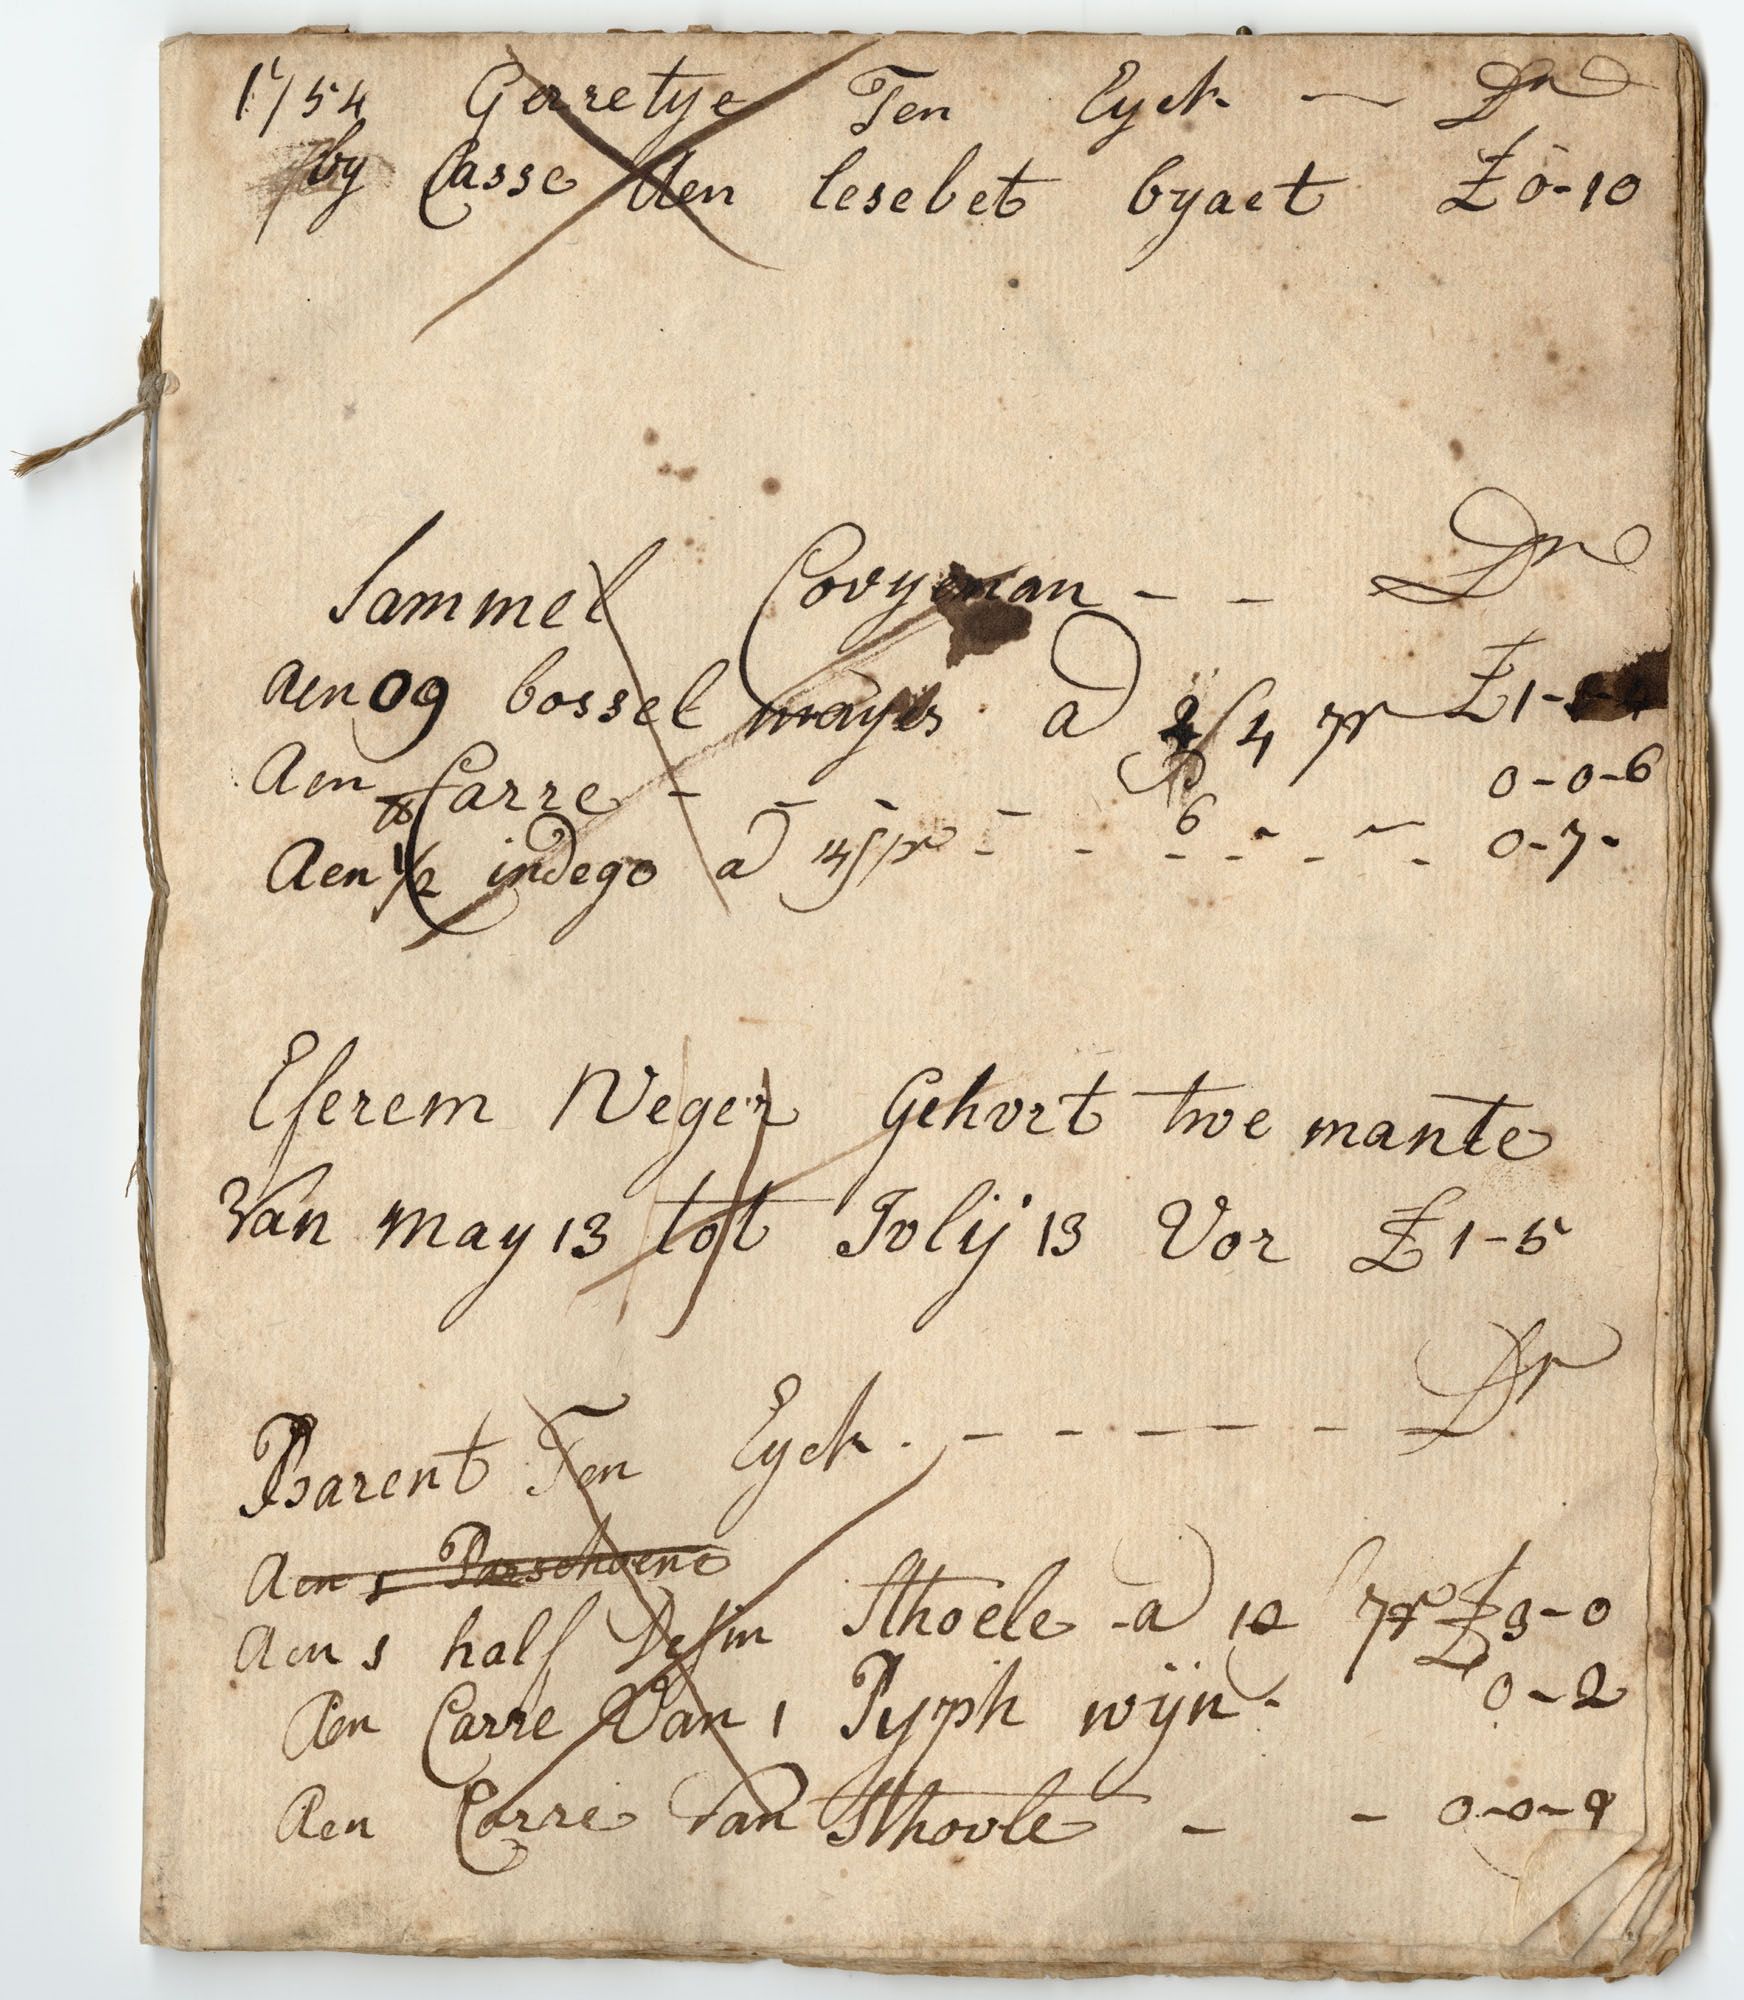 1754 Gerretye Ten Eyck — Dr
by Casse Aen lesebet byaet £0-10
Sammel Covyeman - - Dr
Aen 09 bossel mayes a 2/4 pr £1-1-
Aen Carre - - - - 0-0-6
Aen 1/2 indego a 14/pr - - 6 - - - - 0-7-
Eferem Neger Gehvrt twe mante
Van may 13 tot Jvlij 13 Vor £1-5
Barent Ten Eyck . - - - - - Dr
Aen 1 Parschoene
Aen 1 half Desin Sthoele a 12 pr £3-0
Aen Carre Van 1 Pyph wijn - 0-2
Aen Carre Van Sthovle - - 0-0-9